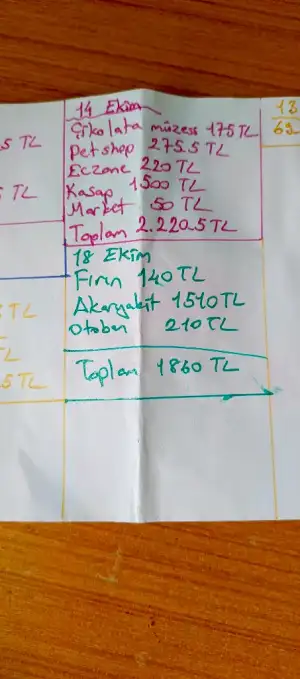 14 Ekim
Çikolata müzesi 175 TL
Petshop 275.5 TL
Eczane 220 TL
Kasap 1500 TL
Market 50 TL
Toplam 2.220.5 TL
18 Ekim
Fırın 140 TL
Akaryakıt 1510 TL
Otoban 210 TL
Toplam 1860 TL
5 TL
TL
TL
5 TL
13